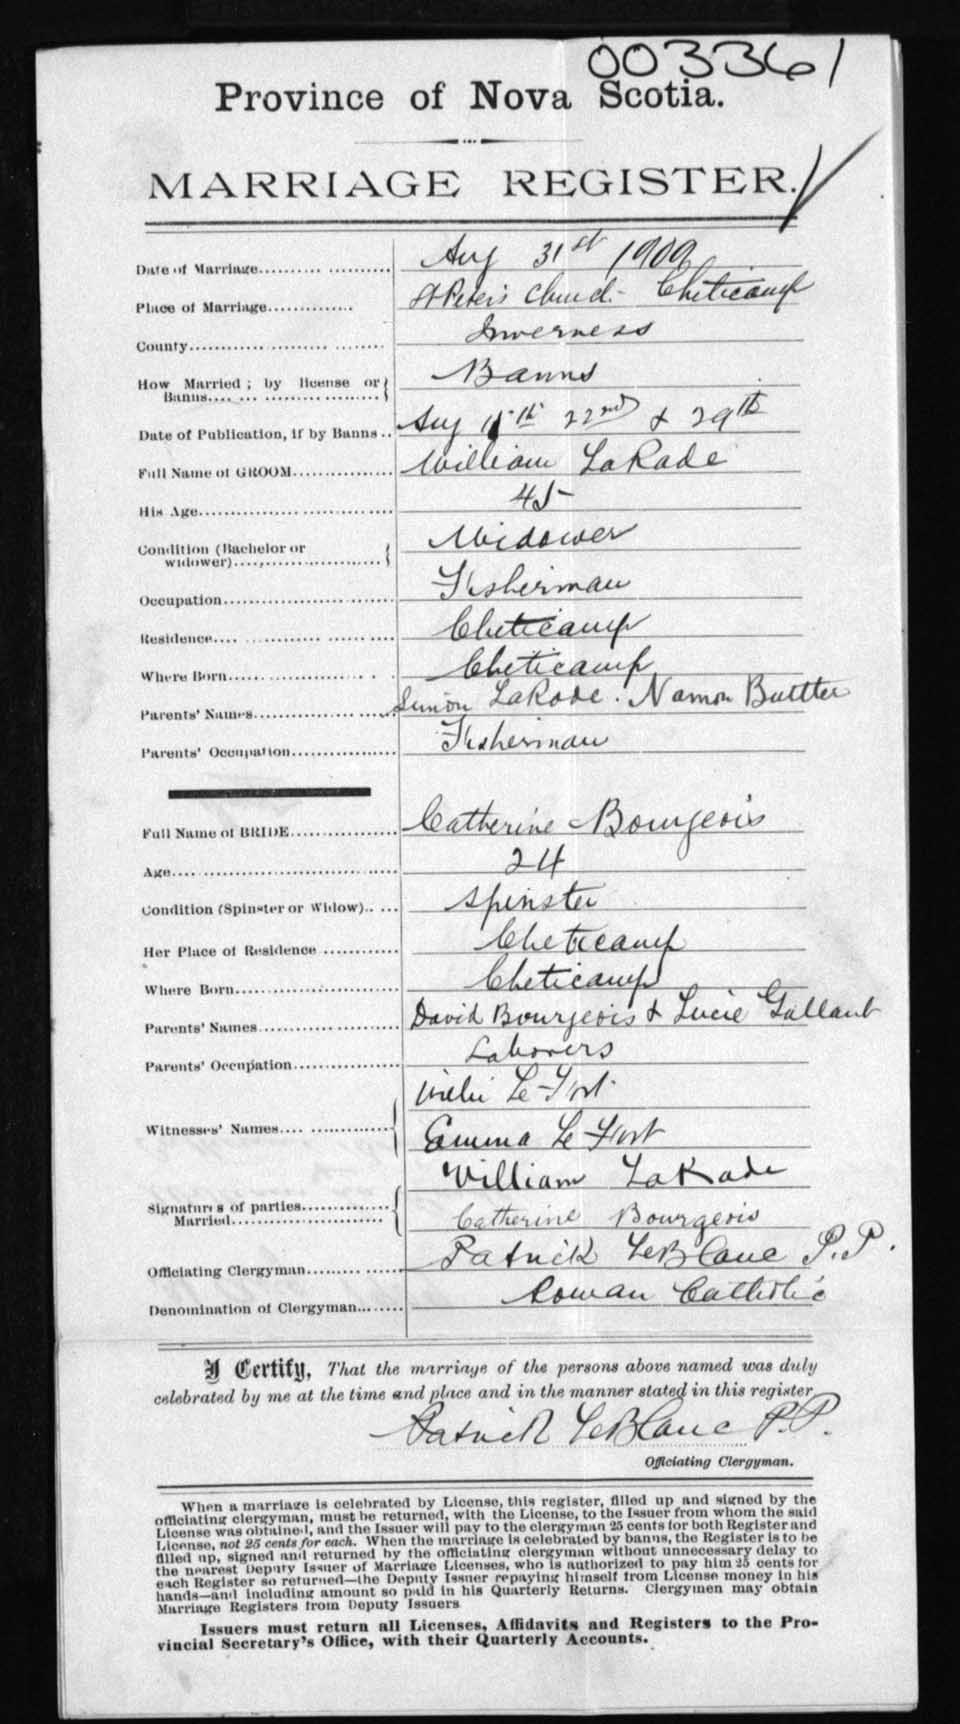 003361
Province of Nova Scotia.
MARRIAGE REGISTER.
Date of Marriage Aug 31st 1909
Place of Marriage St Peter's Church - Cheticamp
County Inverness
How Married; by license or Banns Banns
Date of Publication, if by Banns Aug 15th 22nd & 29th
Full Name of GROOM William LaRade
His Age 45
Condition (Bachelor or widower) Widower
Occupation Fisherman
Residence Cheticamp
Where Born Cheticamp
Parents' Names Simon LaRade. Buttler
Parents' Occupation Fisherman
Full Name of BRIDE Catherine Bourgeois
Age 24
Condition (Spinster or Widow) Spinster
Her Place of Residence Cheticamp
Where Born Cheticamp
Parents' Names David Bourgeois & Lucie Gallant
Parents' Occupation Laborers
Witnesses' Names Le Fort
Emma Le Fort
Signatures of parties Married William LaRade
Catherine Bourgeois
Officiating Clergyman Patrick LeBlanc P.P.
Denomination of Clergyman Roman Catholic
I Certify, That the marriage of the persons above named was duly
celebrated by me at the time and place and in the manner stated in this register
Patrick LeBlanc P.P.
Officiating Clergyman.
When a marriage is celebrated by License, this register, filled up and signed by the
officiating clergyman, must be returned, with the License, to the Issuer from whom the said
License was obtained, and the Issuer will pay to the clergyman 25 cents for both Register and
License, not 25 cents for each. When the marriage is celebrated by banns, the Register is to be
filled up, signed and returned by the officiating clergyman without unnecessary delay to
the nearest Deputy Issuer of Marriage Licenses, who is authorized to pay him 25 cents for
each Register so returned—the Deputy Issuer repaying himself from License money in his
hands—and including amount so paid in his Quarterly Returns. Clergymen may obtain
Marriage Registers from Deputy Issuers
Issuers must return all Licenses, Affidavits and Registers to the Pro-
vincial Secretary's Office, with their Quarterly Accounts.